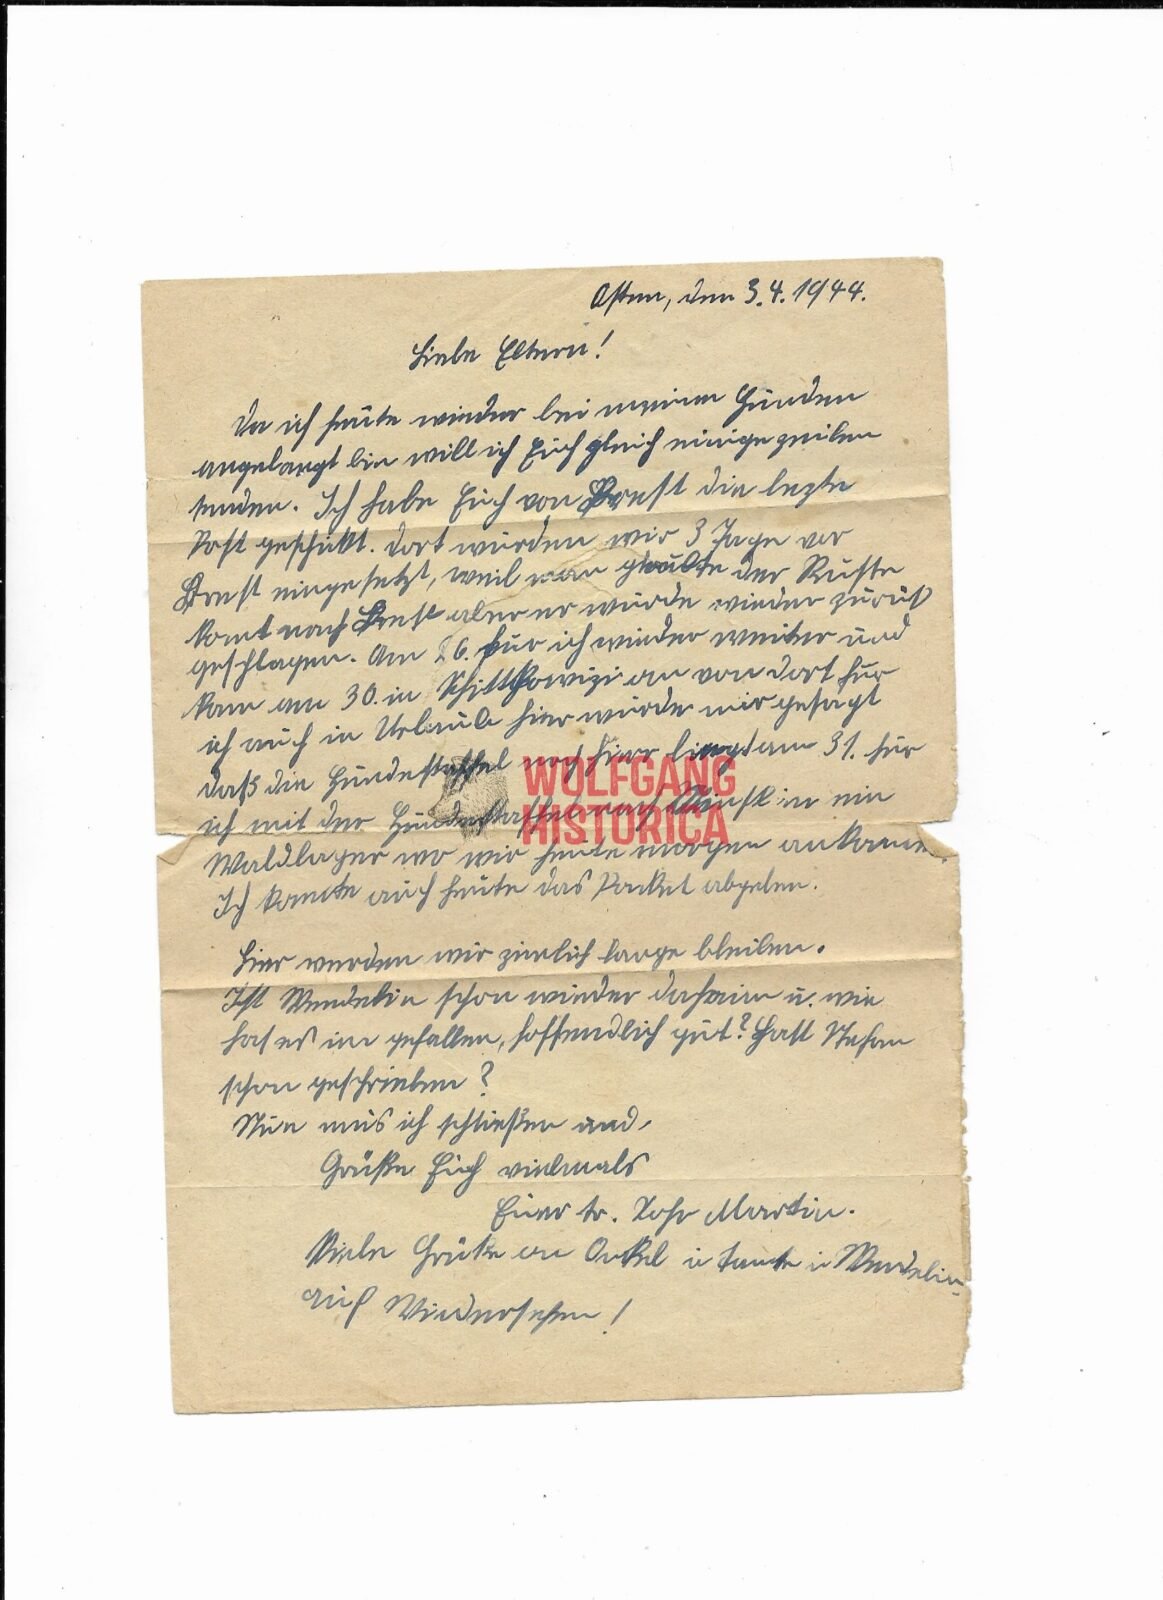 Osten, den 3.4.1944.
Liebe Eltern!
Da ich heute wieder bei meinen Hunden
angelangt bin will ich Euch gleich einige zeilen
senden. Ich habe Euch von Brest die lezte
Post geschikt. Dort wurden wir 3 Tage vor
Brest eingesetzt, weil man glaubte der Russe
komt nach Brest aber er wurde wieder zurük
geschlagen. Am 26. fur ich wieder weiter und
kam am 30. in an von dort fur
ich auch in Urlaub hier wurde mir gesagt
daß die Hundestaffel noch hier liegt am 31. fur
ich mit der Hundestaffel nach Minsk in ein
Waldlager wo wir heute morgen ankamen.
Ich konnte auch heute das Packet abgeben.
Hier werden wir zimlich lange bleiben.
Ist Wendelin schon wieder daheim u. wie
hat es im gefallen, hoffendlich gut? Hatt Stefan
schon geschrieben?
Nun mus ich schließen und
Grüße Euch vielmals
Euer tr. Sohn Martin.
Viele Grüße an Onkel u tante u Wendelin
auf Wiedersehen!
WOLFGANG
HISTORICA